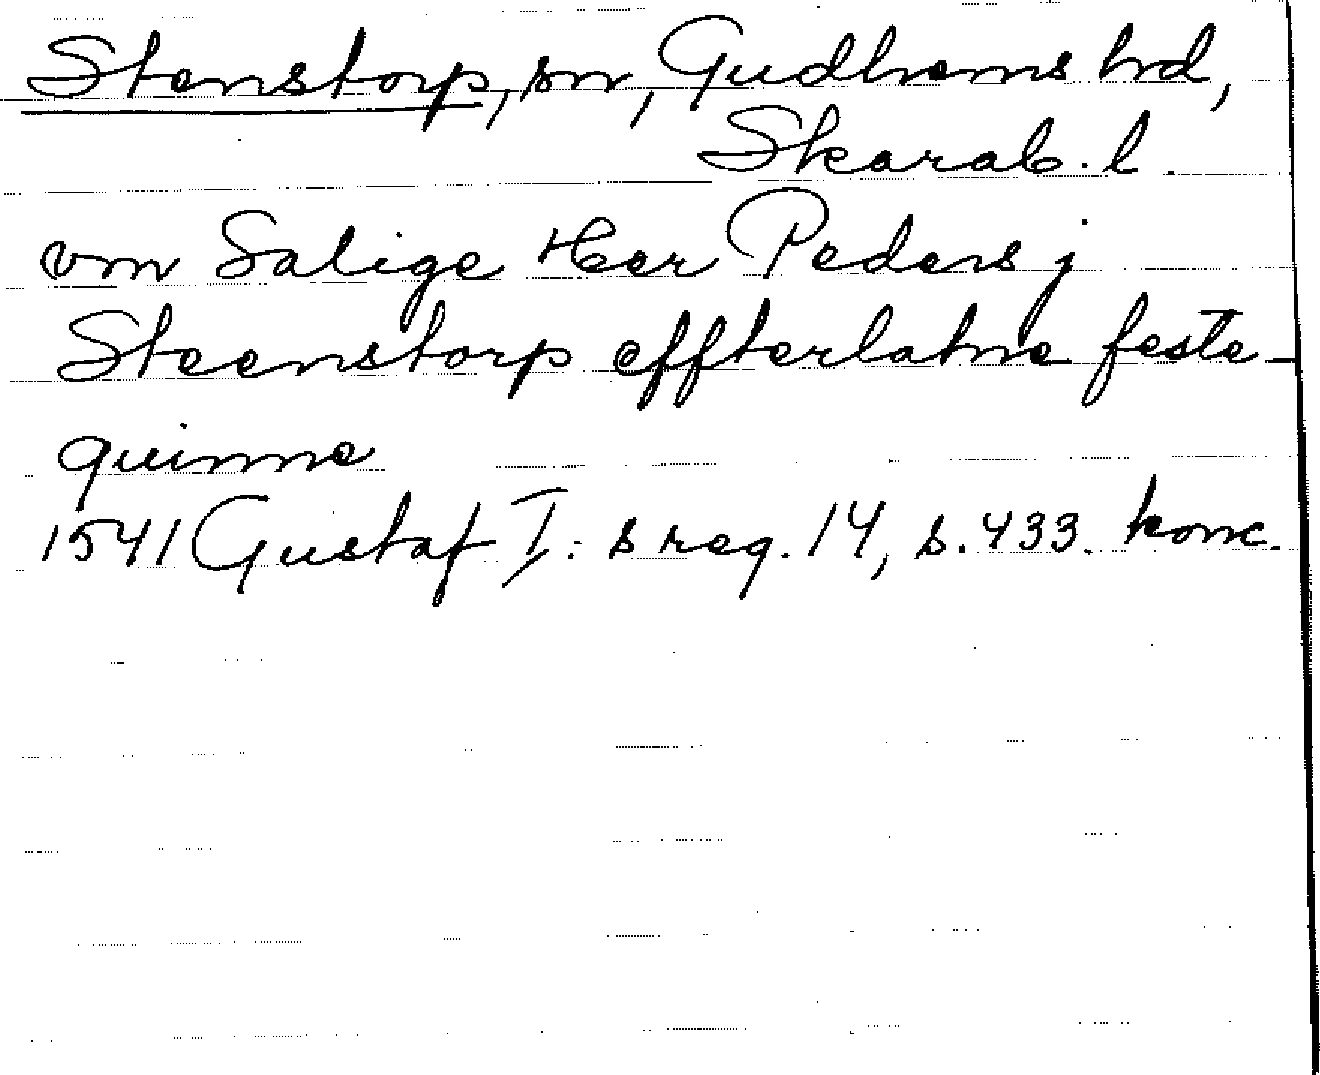 Stenstorp, sn, Gudhems hd,
Skarab. l.
vm Salige Her Peders j
Steenstorp effterlatne feste-
quinne
1541 Gustaf I: s reg. 14, s. 433. konc.